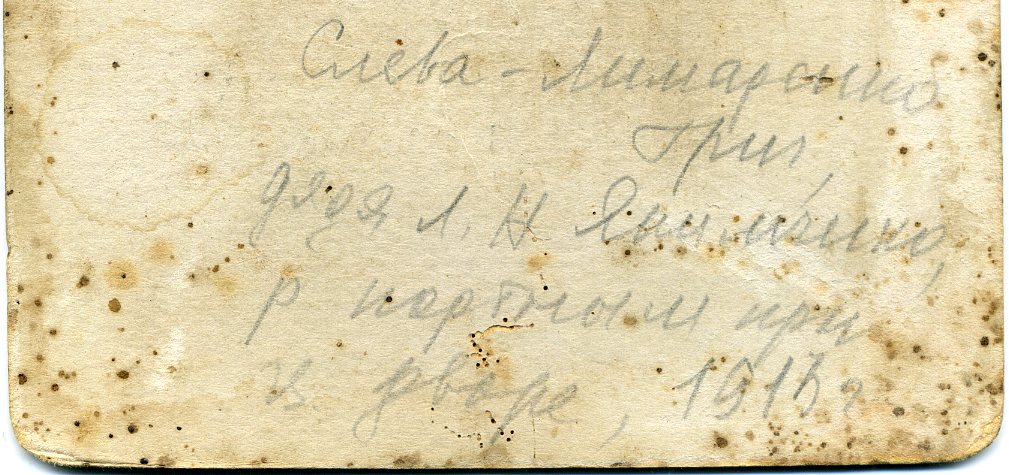 Слева - Лимаренко
Григ
дядя Л. Н Якименко,
р портным при
ц. дворе, 191 г